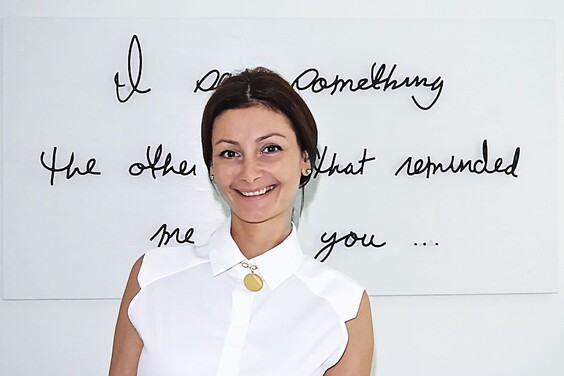 I something
the other that reminded
me you ...